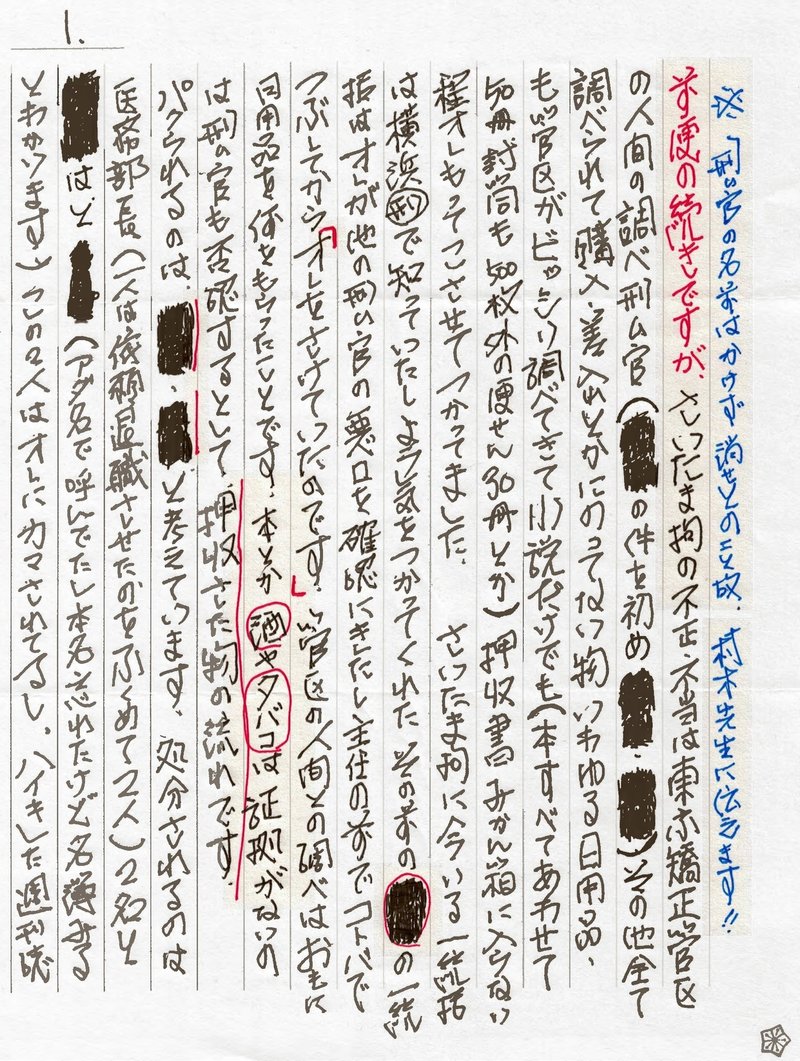 1.
※、「刑ム官の名前はかけず消せとの事故、村木先生に伝えます!!
前便の続きですが、さいたま拘の不正・不当は東京矯正官区
の人間の調べ刑ム官(の件を初め・)その他全て
調べられて購入・差入れとかにのってない物いわゆる日用品、
も官区がビッシリ調べてきて小説だけでも(本すべてあわせて
50冊封筒も500枚外の便せん30冊とか)押収書みかん箱に入らない
程オレもってこさせてつかってました。さいたま拘に今いる一統括
は横浜刑で知っていたしよう気をつかってくれたその前のの一統
括はオレが他の刑ム官の悪口を確認にきたし主任の前でコトバで
つぶしてから「オレをさけていたのです。」官区の人間との調べはおもに
日用品を何をもらったことです、本とか酒やタバコは証拠がないの
は刑ム官も否認するとして、押収された物の流れです。
パクられるのは、・と考えています。処分されるのは
医務部長(一人は依頼退職させたのをふくめて2人)2名と
はと(アダ名で呼んでたし本名忘れたけど名簿みる
とわかります)この2人はオレにカマされてるし、ハイキした週刊誌